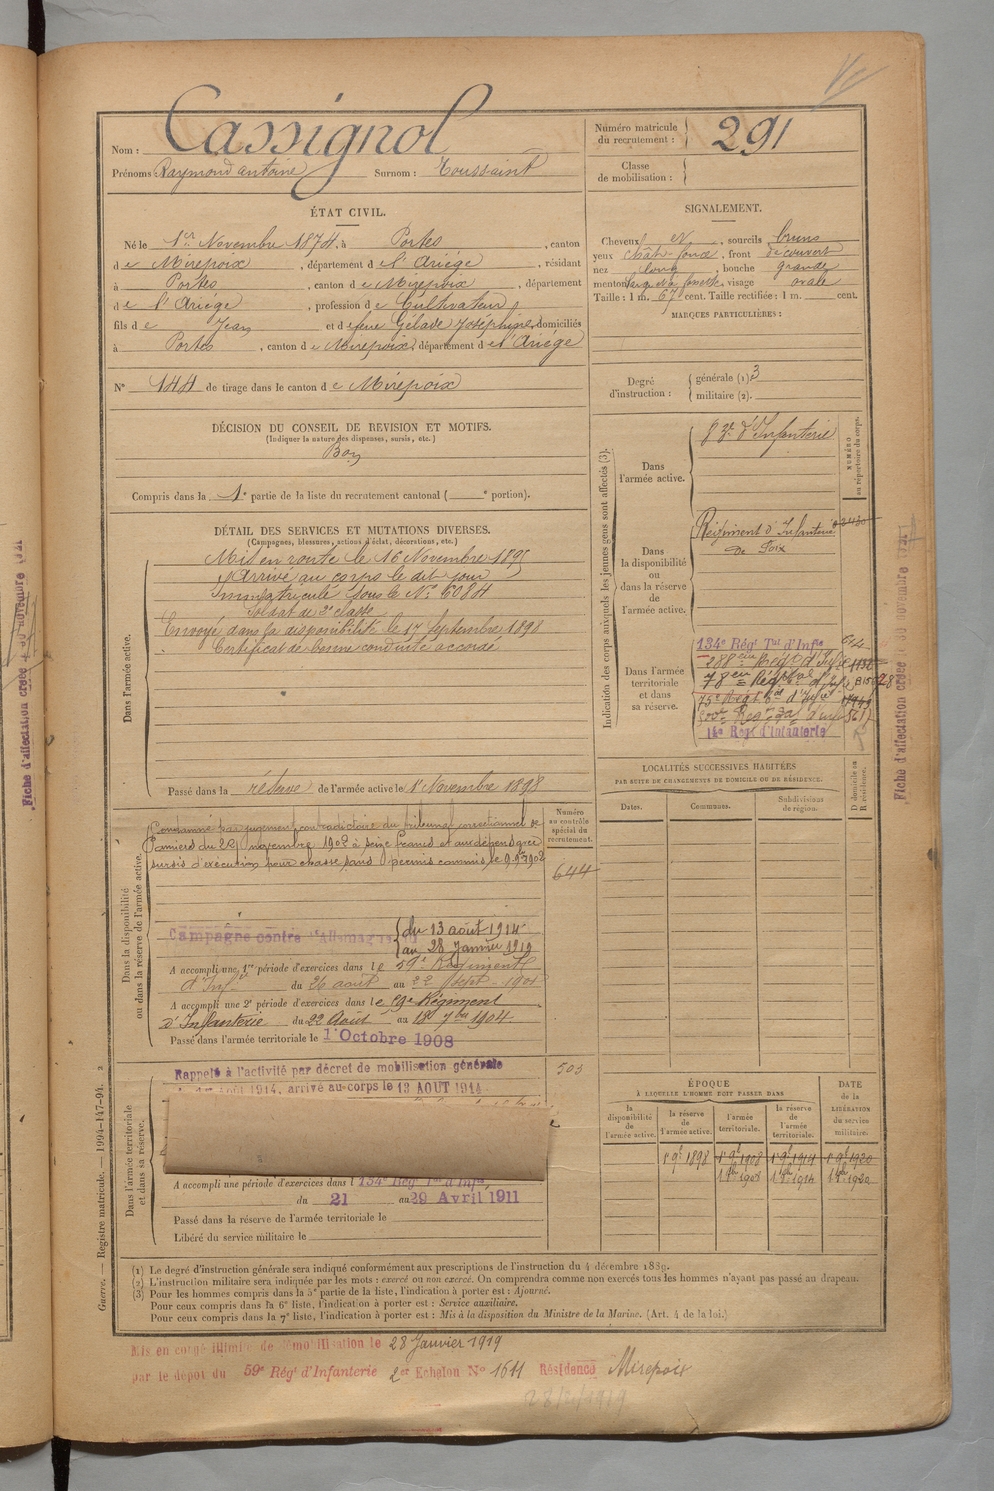 Nom : Cassignol
Prénoms Raymond Antoine Surnom : Toussaint
Numéro matricule du recrutement : 291
Classe de mobilisation :
ÉTAT CIVIL.
Né le 1er Novembre 1874, à Portes, canton
de Mirepoix, département de l'Ariége, résidant
à Portes, canton de Mirepoix, département
de l'Ariége, profession de Cultivateur
fils de Jean et de feue Gélade Joséphine, domiciliés
à Portes, canton de Mirepoix, département de l'Ariége
N° 144 de tirage dans le canton de Mirepoix
SIGNALEMENT.
Cheveux et, sourcils bruns
yeux chât. foncé, front découvert
nez long, bouche grande
menton à fossette, visage ovale
Taille : 1 m. 67 cent. Taille rectifiée : 1 m. cent.
MARQUES PARTICULIÈRES :
Degré d'instruction : générale (1) 3
militaire (2).
DÉCISION DU CONSEIL DE REVISION ET MOTIFS.
(Indiquer la nature des dispenses, sursis, etc.)
Bon
Compris dans la 1e partie de la liste du recrutement cantonal ( e portion).
DÉTAIL DES SERVICES ET MUTATIONS DIVERSES.
(Campagnes, blessures, actions d'éclat, décorations, etc.)
Dans l'armée active.
Mis en route le 16 Novembre 1895
Arrivé au corps le dit jour
Immatriculé sous le N° 6084
Soldat de 2e classe
Envoyé dans la disponibilité le 17 Septembre 1898
Certificat de bonne conduite accordé
Passé dans la réserve de l'armée active le 1er Novembre 1898
Indication des corps auxquels les jeunes gens sont affectés (3).
NUMÉRO au répertoire du corps.
Dans l'armée active.
d'Infanterie
Dans la disponibilité ou dans la réserve de l'armée active.
Régiment d'Infanterie
de Foix
Dans l'armée territoriale et dans sa réserve.
134e Régt Tal d'Infie 644
14e Rég. d'Infanterie
LOCALITÉS SUCCESSIVES HABITÉES
PAR SUITE DE CHANGEMENTS DE DOMICILE OU DE RÉSIDENCE.
Dates. Communes. Subdivisions de région. D domicile ou R résidence.
Dans la disponibilité ou dans la réserve de l'armée active.
Numéro au contrôle spécial du recrutement.
644
Condamné par jugement contradictoire du tribunal correctionnel de
Pamiers du 29 novembre 1902 à seize francs et aux dépens avec
sursis d'exécution pour chasse sans permis commis le 9 9bre 1902
Campagne contre l'Allemagne du 13 août 1914
au 28 Janvier 1919
A accompli une 1re période d'exercices dans le 59e Régiment
d'Inf. du 26 août au 22 Sept. 1901
A accompli une 2e période d'exercices dans le 59e Régiment
d'Infanterie du 22 Août au 18 7bre 1904.
Passé dans l'armée territoriale le 1 Octobre 1908
Dans l'armée territoriale et dans sa réserve.
Rappelé à l'activité par décret de mobilisation générale
août 1914, arrivé au corps le 13 AOUT 1914
503
A accompli une période d'exercices dans l 134e Rég. Tal d'Infie
du 21 au 29 Avril 1911
Passé dans la réserve de l'armée territoriale le
Libéré du service militaire le
ÉPOQUE
À LAQUELLE L'HOMME DOIT PASSER DANS
la disponibilité de l'armée active.
la réserve de l'armée active.
l'armée territoriale.
la réserve de l'armée territoriale.
DATE de la LIBÉRATION du service militaire.
1er 9bre 1898 1er 9bre 1908 1er 9bre 1914 1er 9bre 1920
1er 8bre 1908 1er 8bre 1914 1er 8bre 1920
(1) Le degré d'instruction générale sera indiqué conformément aux prescriptions de l'instruction du 4 décembre 1889.
(2) L'instruction militaire sera indiquée par les mots : exercé ou non exercé. On comprendra comme non exercés tous les hommes n'ayant pas passé au drapeau.
(3) Pour les hommes compris dans la 5e partie de la liste, l'indication à porter est : Ajourné.
Pour ceux compris dans la 6e liste, l'indication à porter est : Service auxiliaire.
Pour ceux compris dans la 7e liste, l'indication à porter est : Mis à la disposition du Ministre de la Marine. (Art. 4 de la loi.)
Mis en congé illimité de démobilisation le 28 Janvier 1919
par le dépôt du 59e Régt d'Infanterie 2er Echelon N° 1611 Résidence Mirepoix
28/2/1919
Guerre. — Registre matricule. — 1994-147-94. 2
Fiche d'affectation créée le 30 novembre 1921